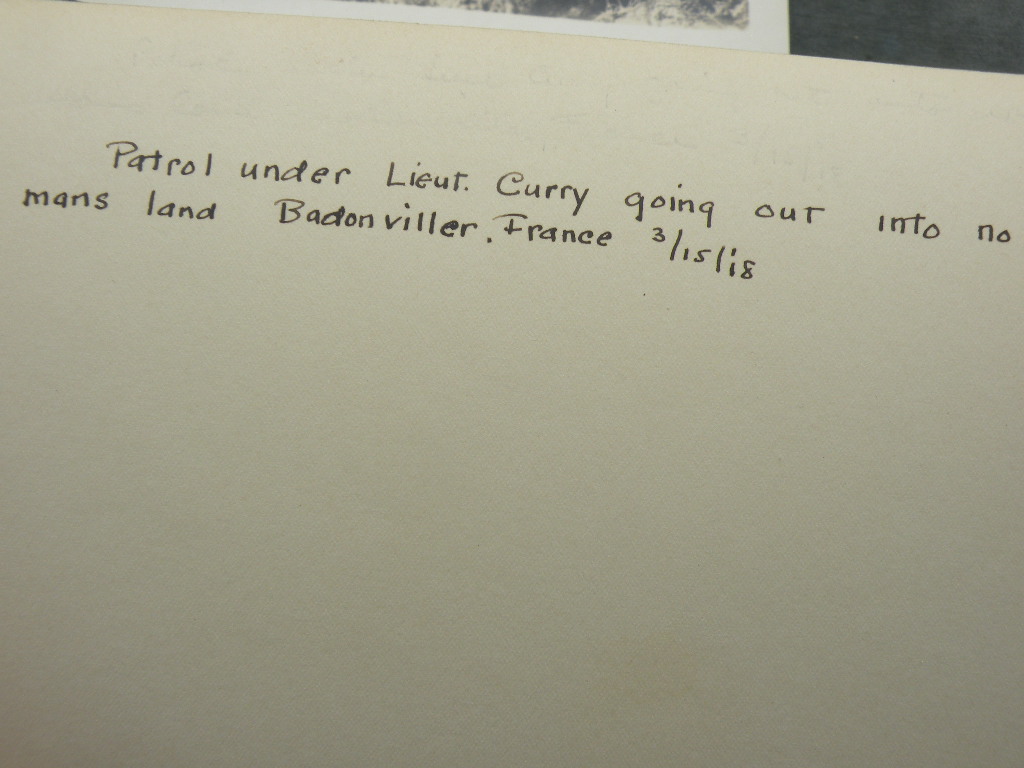 Patrol under Lieut. Curry going out into no
mans land Badonviller. France 3/15/18